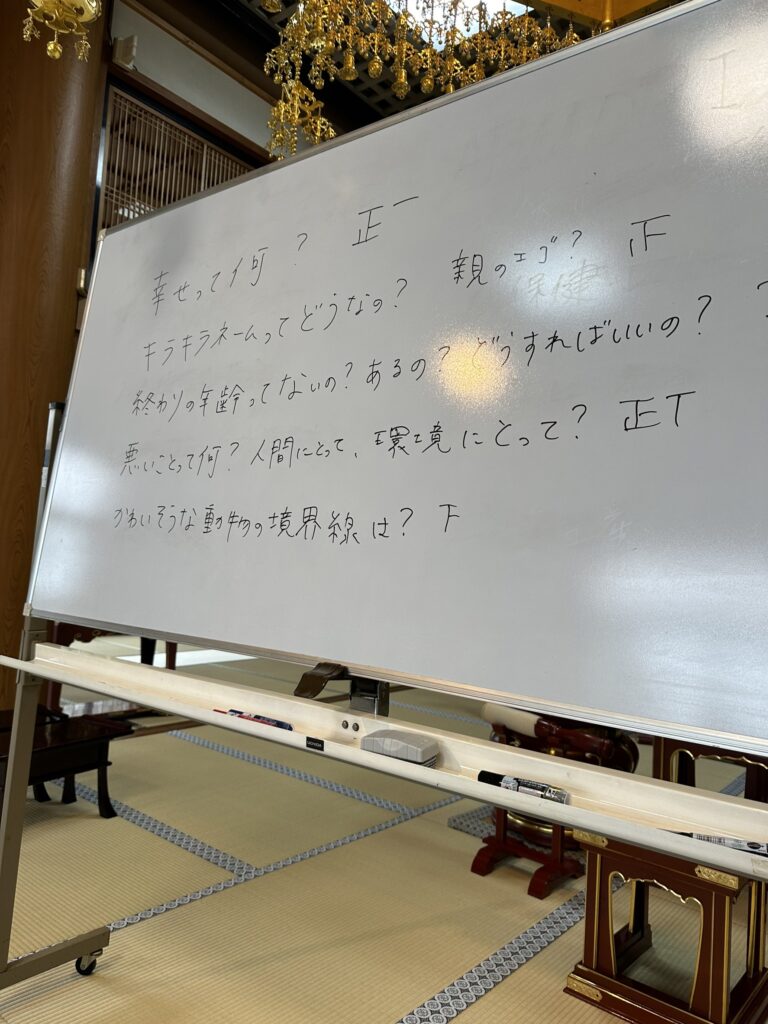 幸せって何? 正一
キラキラネームってどうなの? 親のエゴ? 正
終わりの年齢ってないの?あるの?どうすればいいの?
悪いことって何?人間にとって、環境にとって? 正T
かわいそうな動物の境界線は? 下
保健